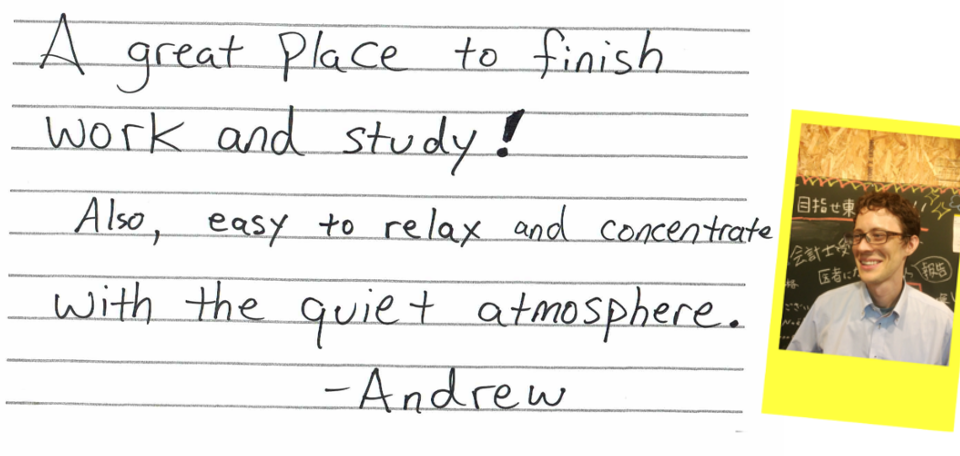 A great place to finish
work and study!
Also, easy to relax and concentrate
with the quiet atmosphere.
-Andrew
目指せ東
会計士受
医者に
報告